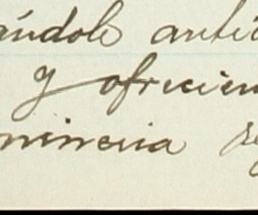 ándole anti
y ofrecien
minencia re